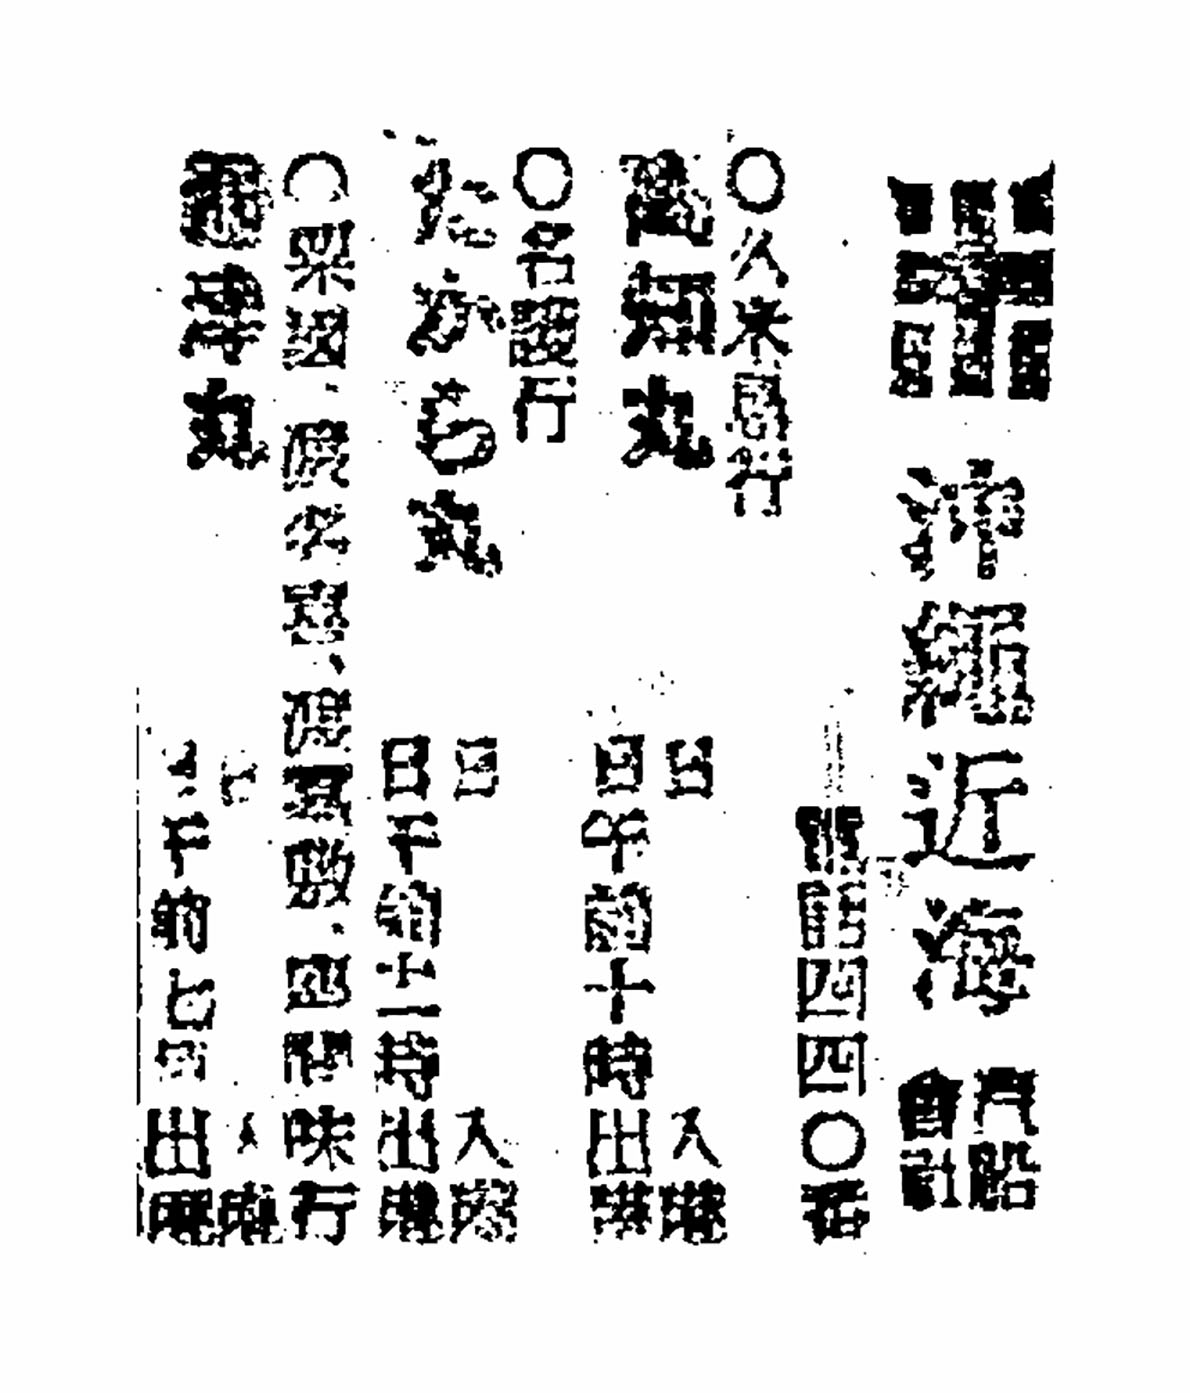 沖繩近海汽船會社
電話四四〇番
〇久米島行
知丸
日入港
日午前十時出港
〇名護行
たから丸
日入港
日午前十一時出港
〇粟國、渡名喜、渡嘉敷、座間味行
津丸
入港
午前七時出港